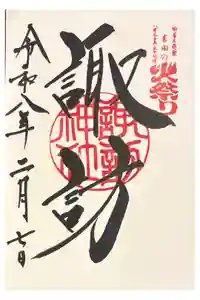 吉田の
火祭り
諏訪
諏訪
神社
令和八年二月七日